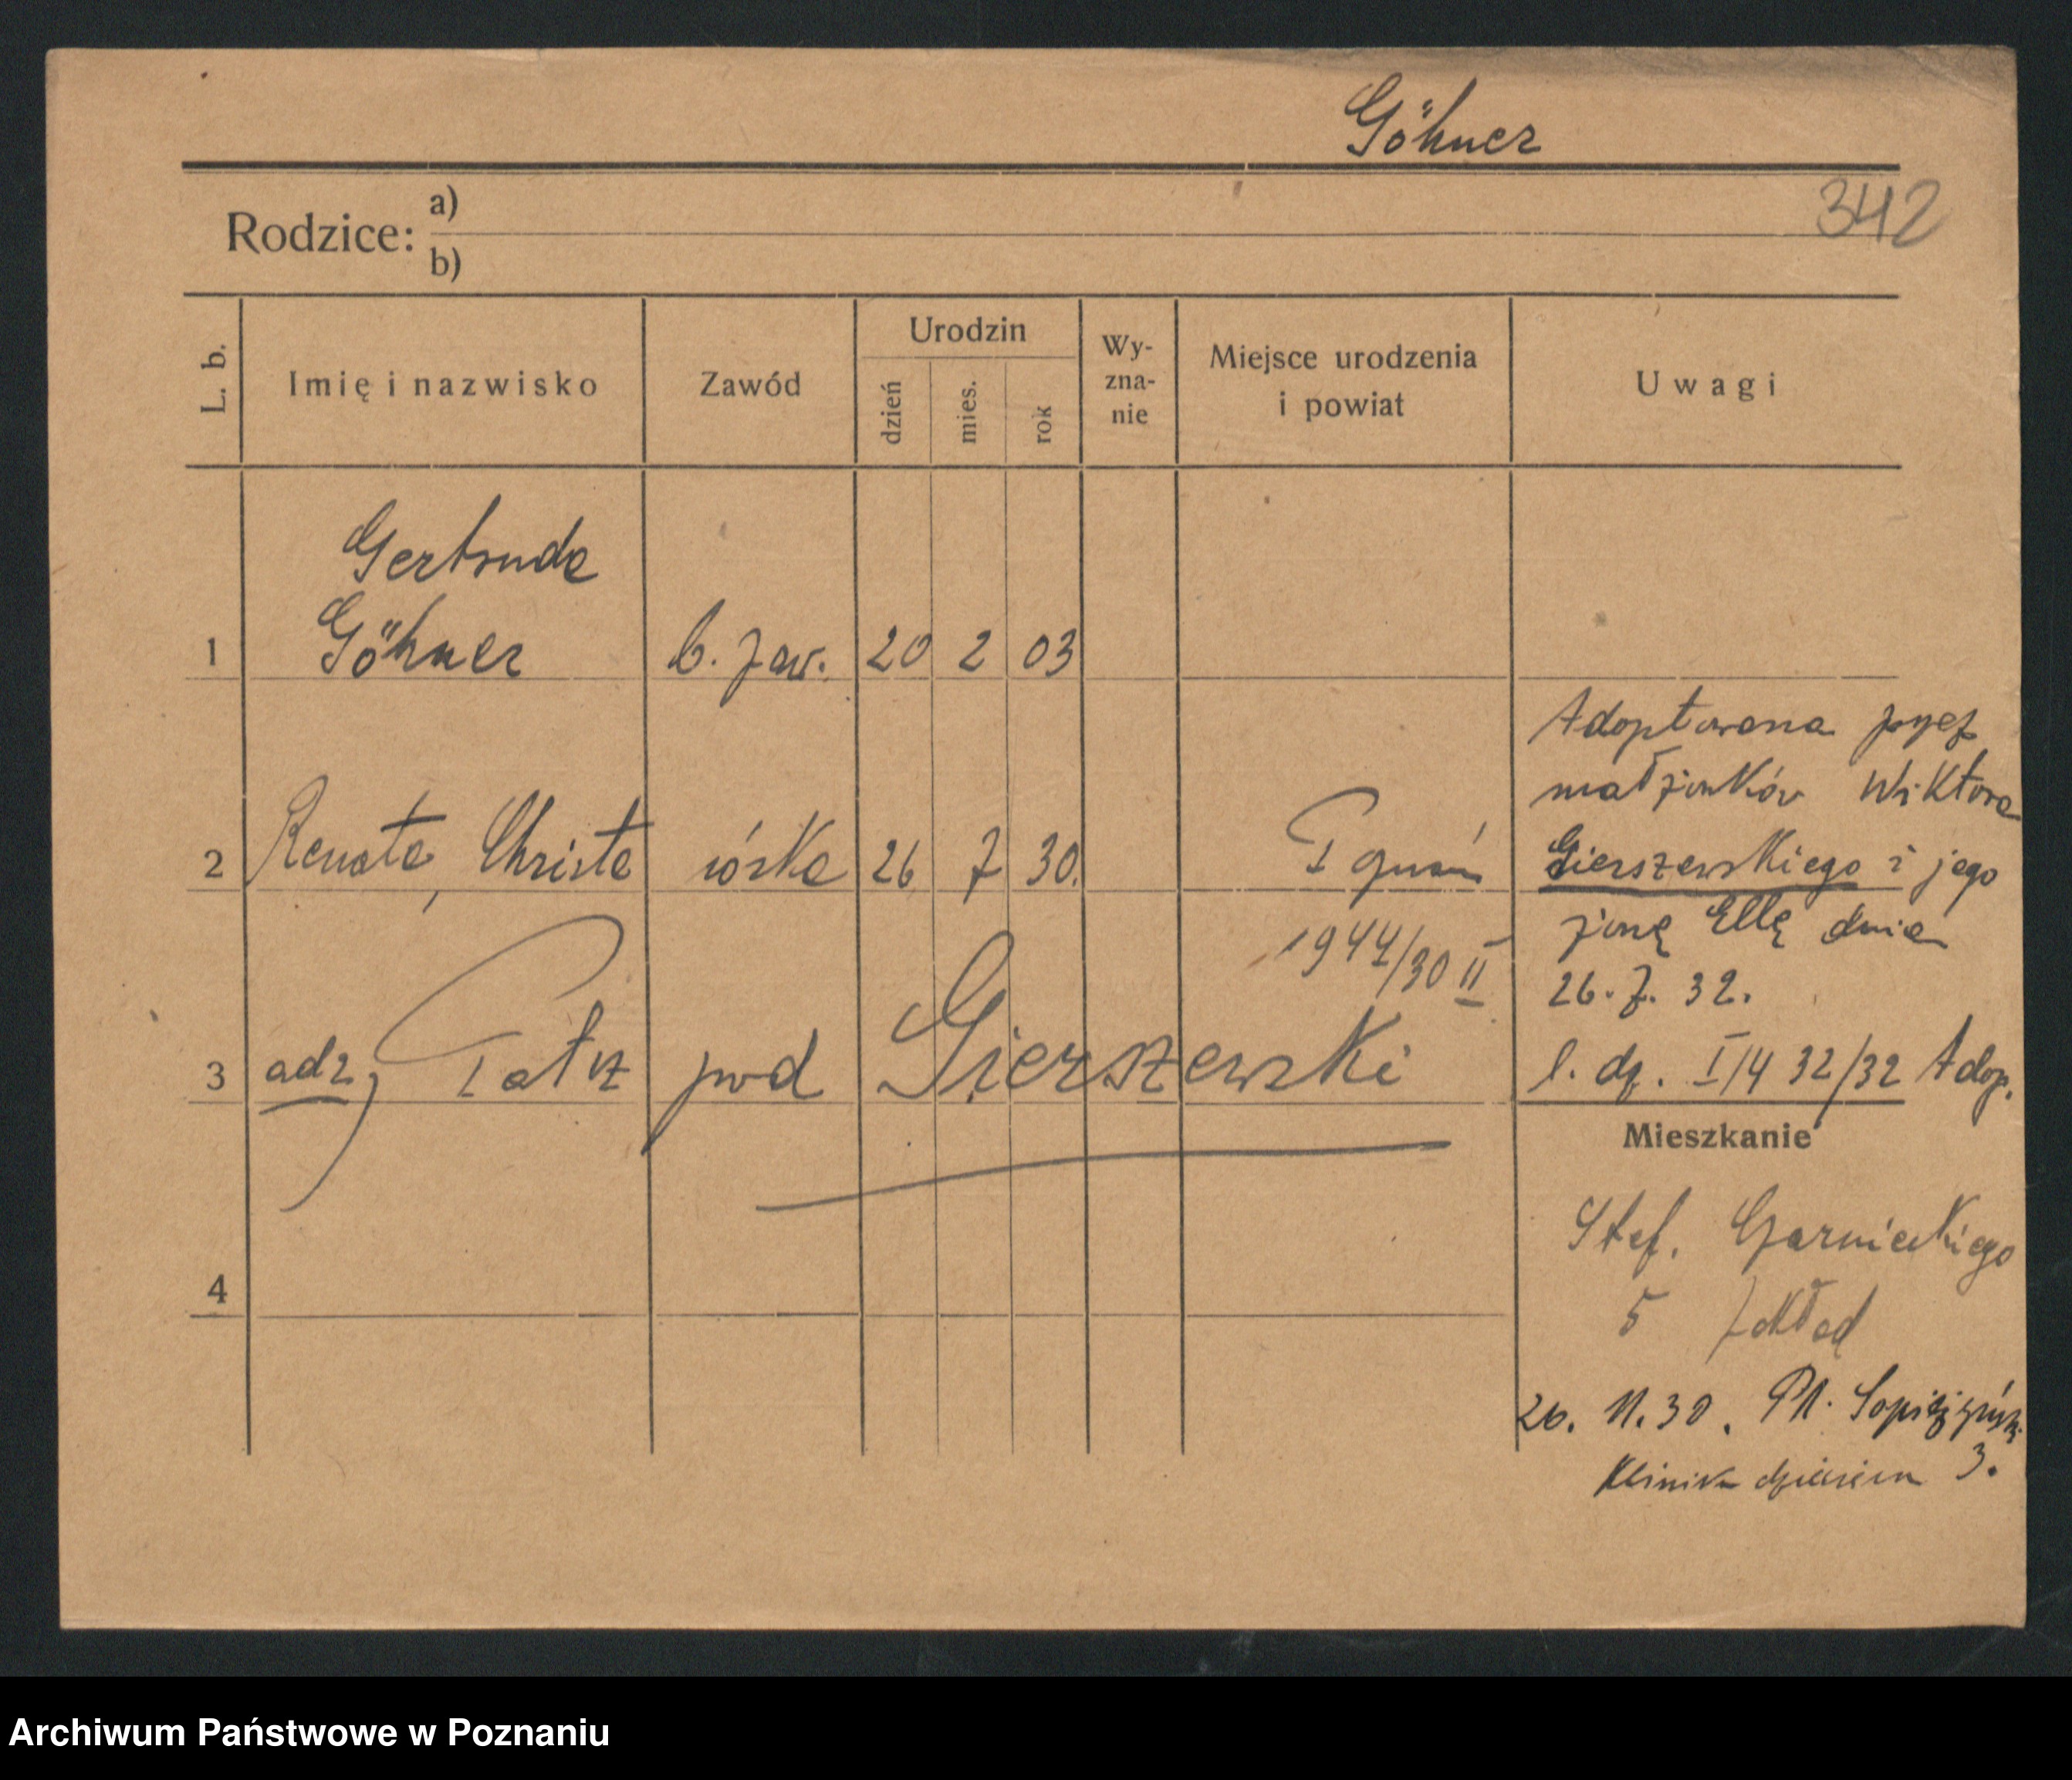 Göhner
342
Rodzice: a)
b)
L. b. Imię i nazwisko Zawód Urodzin dzień mies. rok Wy-zna-nie Miejsce urodzenia i powiat Uwagi
Gertruda
1 Göhner b. zaw. 20 2 03
Adoptowana przez
małżonków Wiktora
2 Renata, Christa córka 26 7 30. Poznań
Gierszewskiego i jego
1944/30 II
żonę Ellę dnia
26. 7. 32.
3 adz, Patrz pod Gierszewski
l. dz. I/4 32/32 Adop.
Mieszkanie
Stef. Czarnieckiego
4
5 Zakład
26. 11. 30. Pl. Sapieżyński
3.
Klinika dziecięca
Archiwum Państwowe w Poznaniu